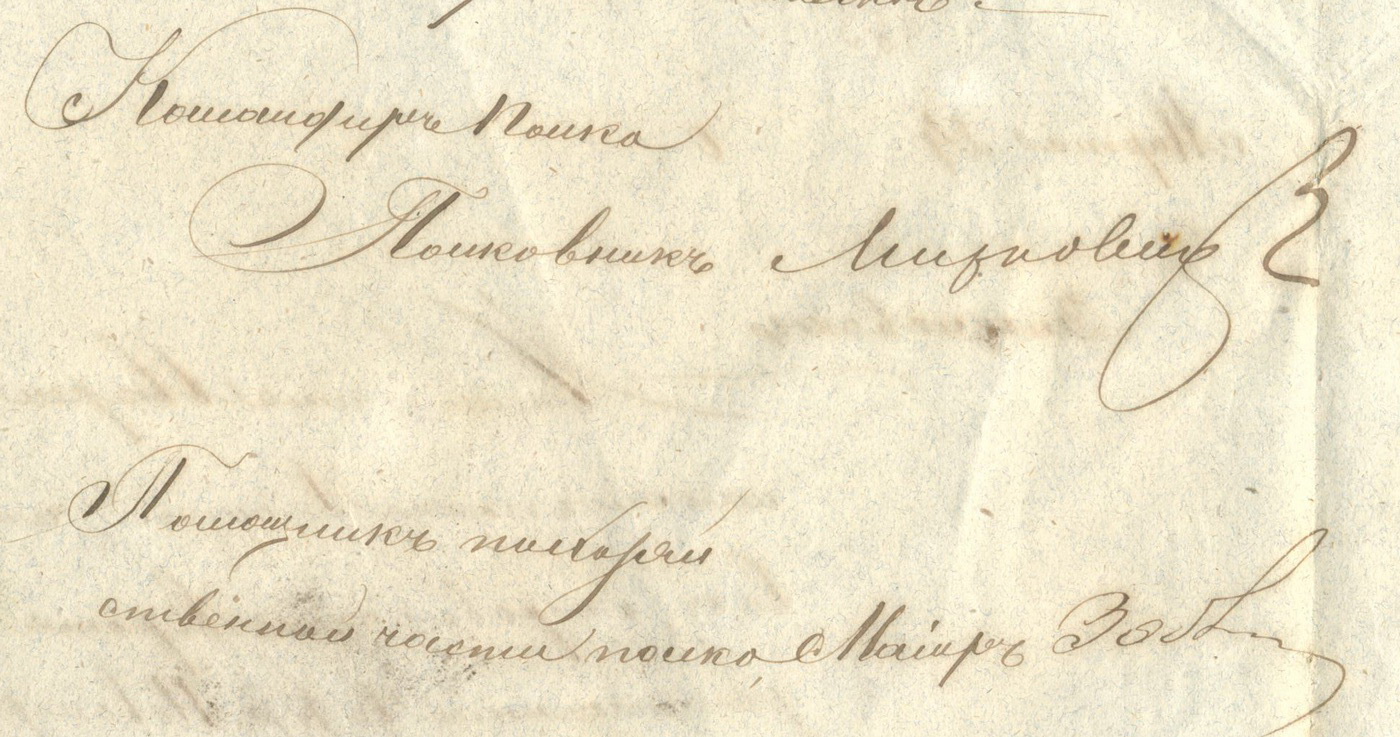 Командиръ полка
Полковникъ Мирковичъ
Помощникъ по хозяй
ственной части полка, Маіоръ